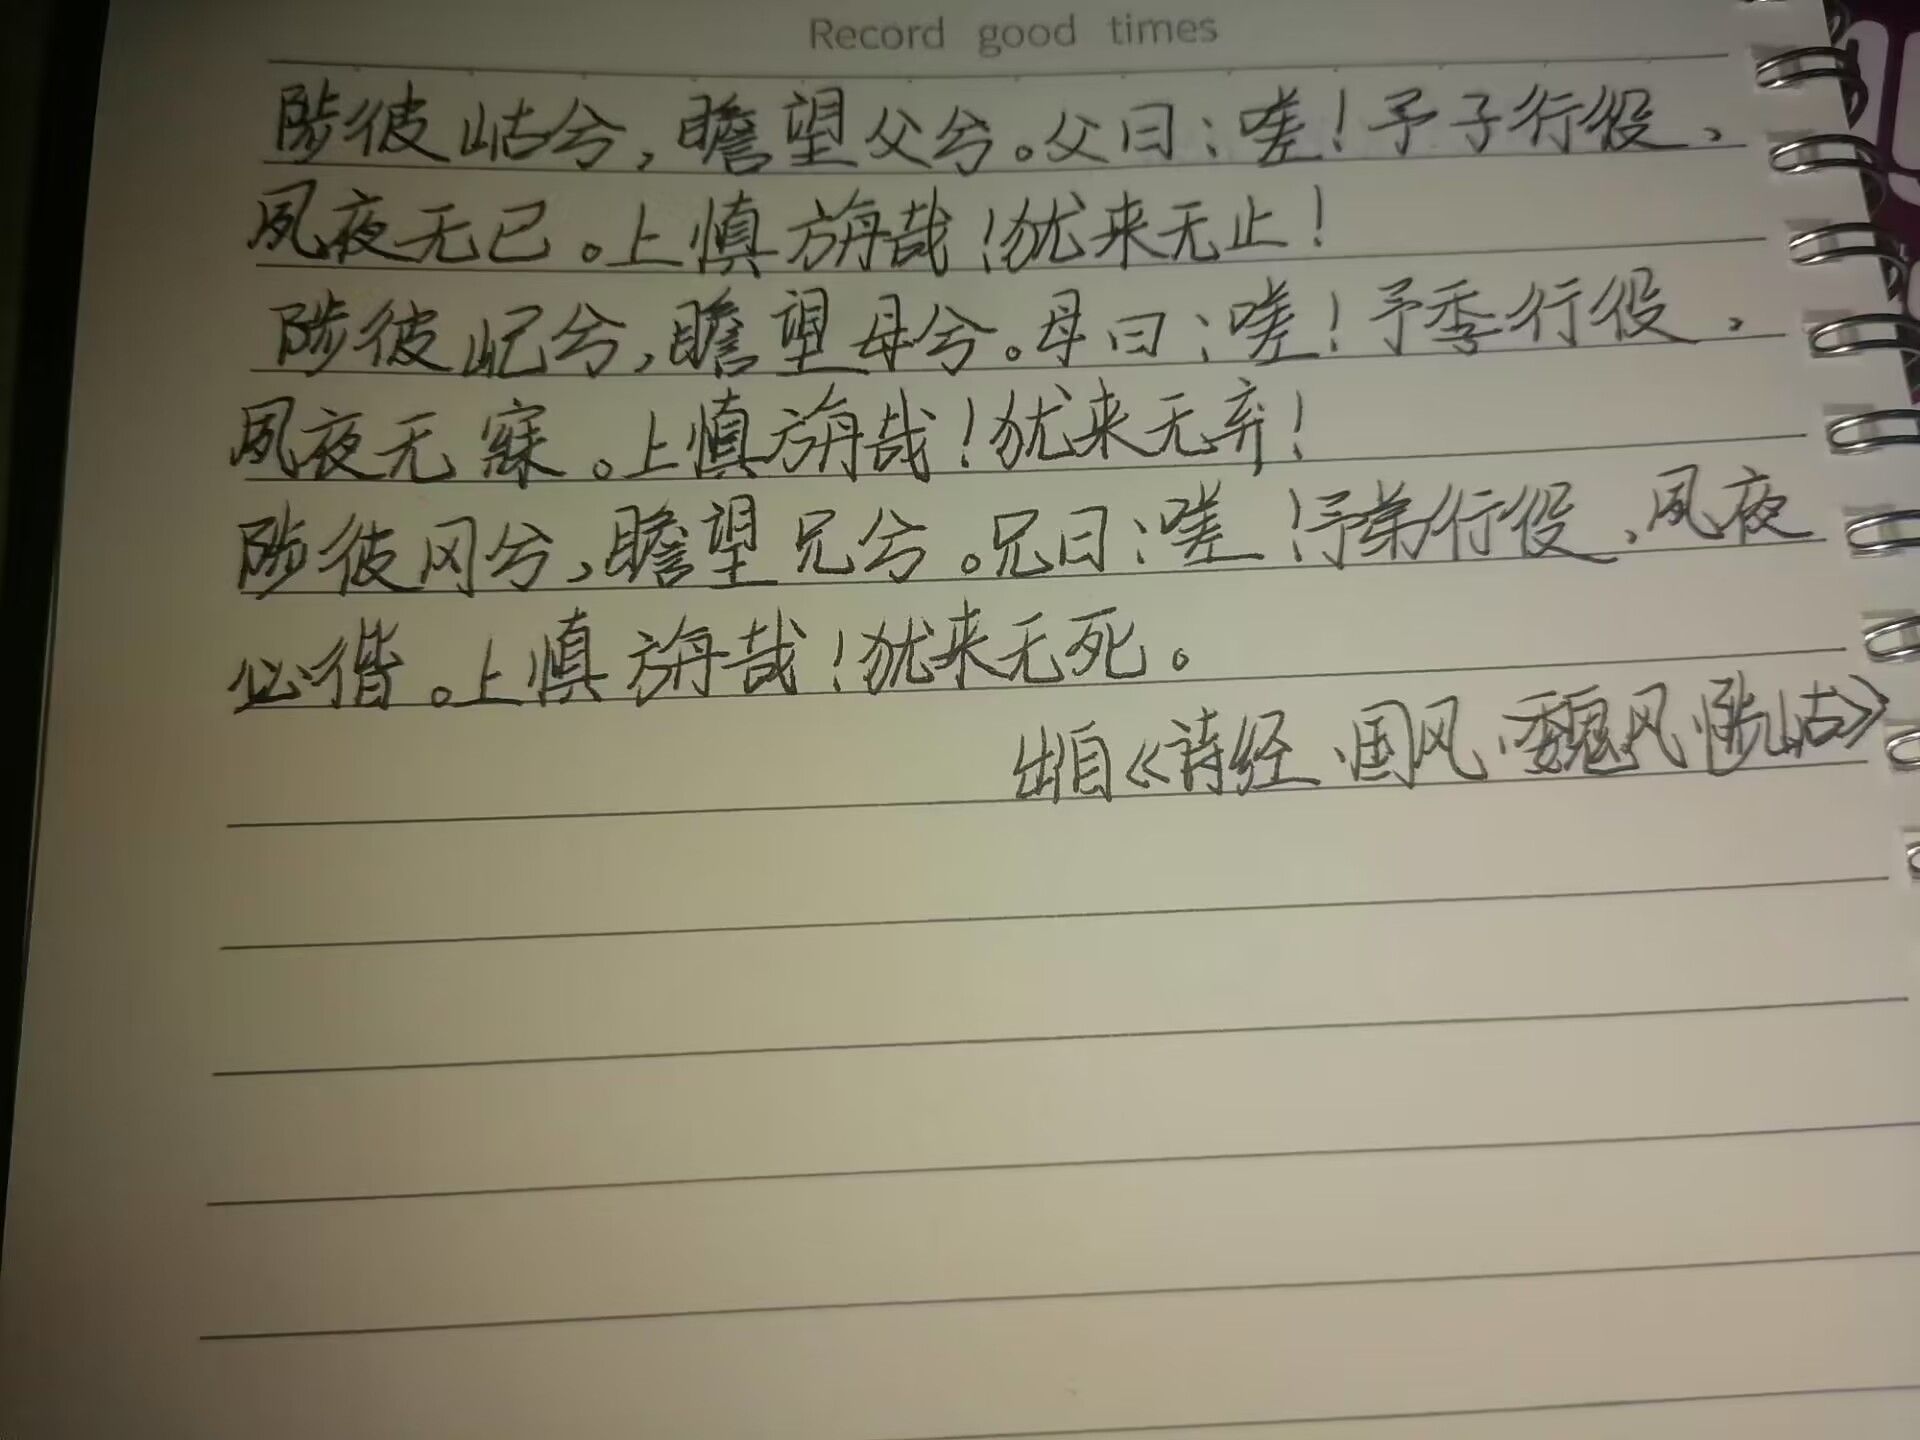 Record good times
陟彼岵兮,瞻望父兮。父曰:嗟!予子行役,
夙夜无已。上慎旃哉!犹来无止!
陟彼屺兮,瞻望母兮。母曰:嗟!予季行役,
夙夜无寐。上慎旃哉!犹来无弃!
陟彼冈兮,瞻望兄兮。兄曰:嗟!予弟行役,夙夜
必偕。上慎旃哉!犹来无死。
出自《诗经·国风·魏风·陟岵》